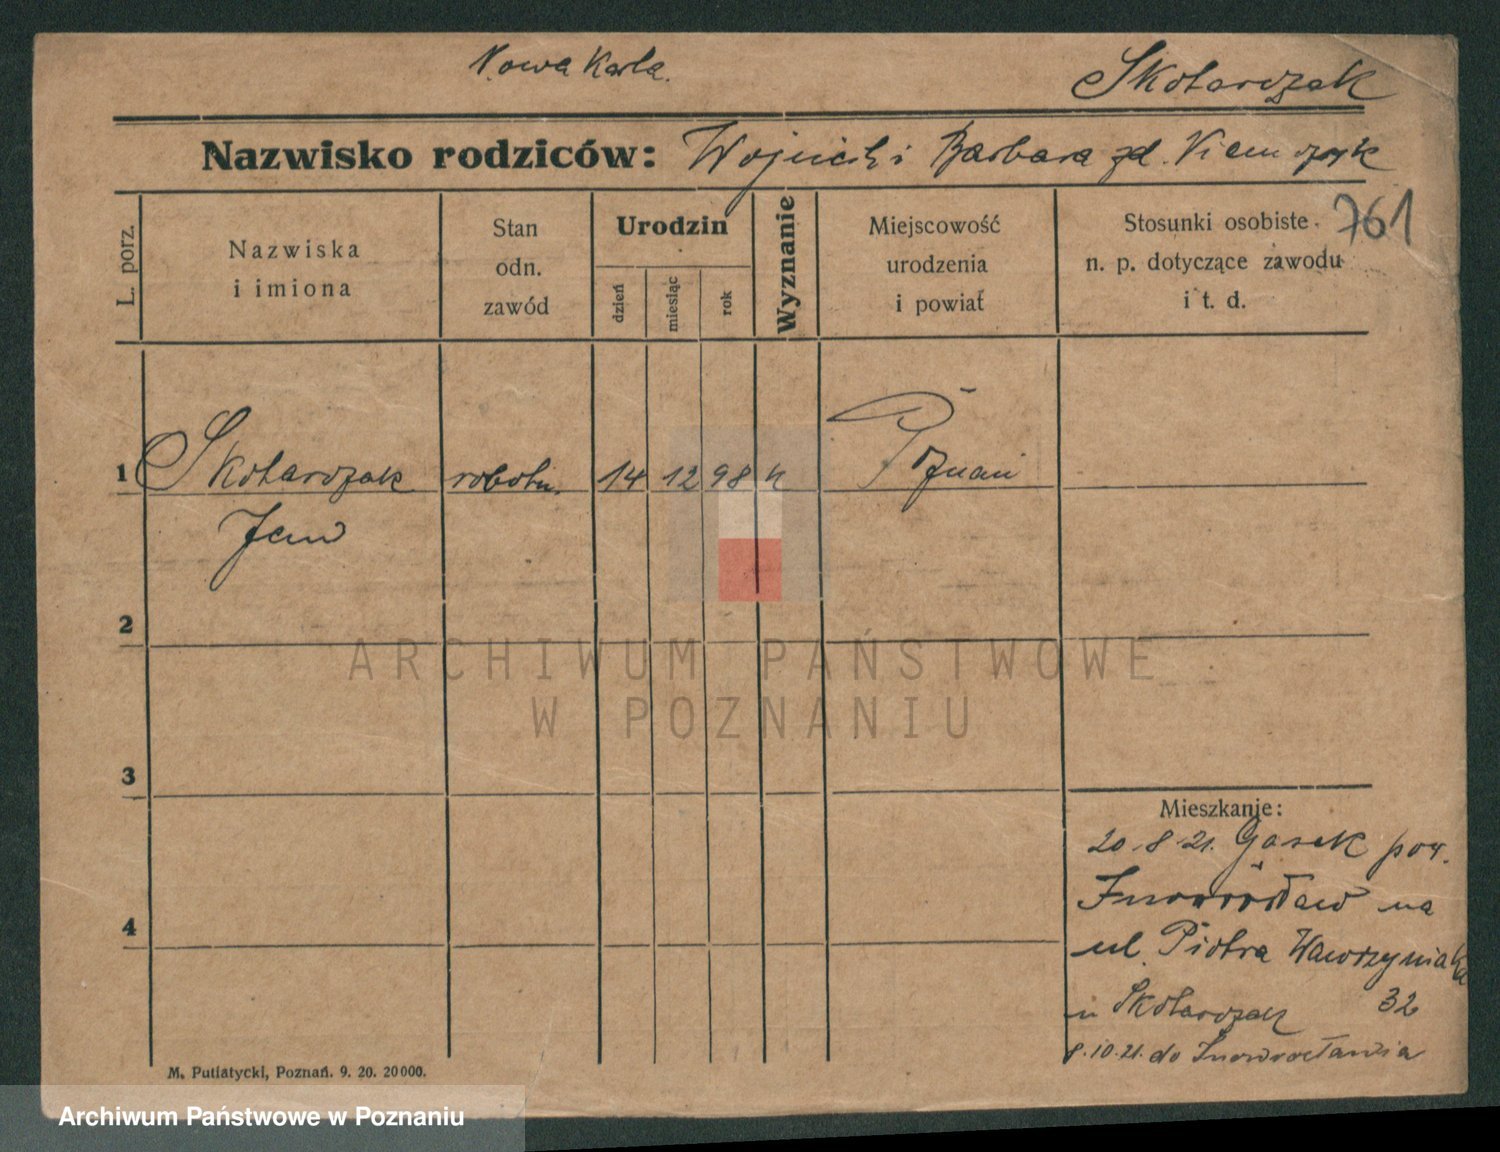 Nowa Karta.
Skotarczak
Nazwisko rodziców: Wojciech i Barbara zd.
761
L. porz.
Nazwiska
i imiona
Stan
odn.
zawód
Urodzin
dzień
miesiąc
rok
Wyznanie
Miejscowość
urodzenia
i powiat
Stosunki osobiste
n. p. dotyczące zawodu
i t. d.
1 Skotarczak robotn. 14 12 98 k Poznań
Jan
2
3
4
Mieszkanie:
20.8.21. Gąsek pow.
Inowrocław na
ul. Piotra Wawrzyniaka
u Skotarczak 32
8.10.21. do Inowrocławia
M. Putiatycki, Poznań. 9. 20. 20000.
ARCHIWUM PAŃSTWOWE
W POZNANIU
Archiwum Państwowe w Poznaniu